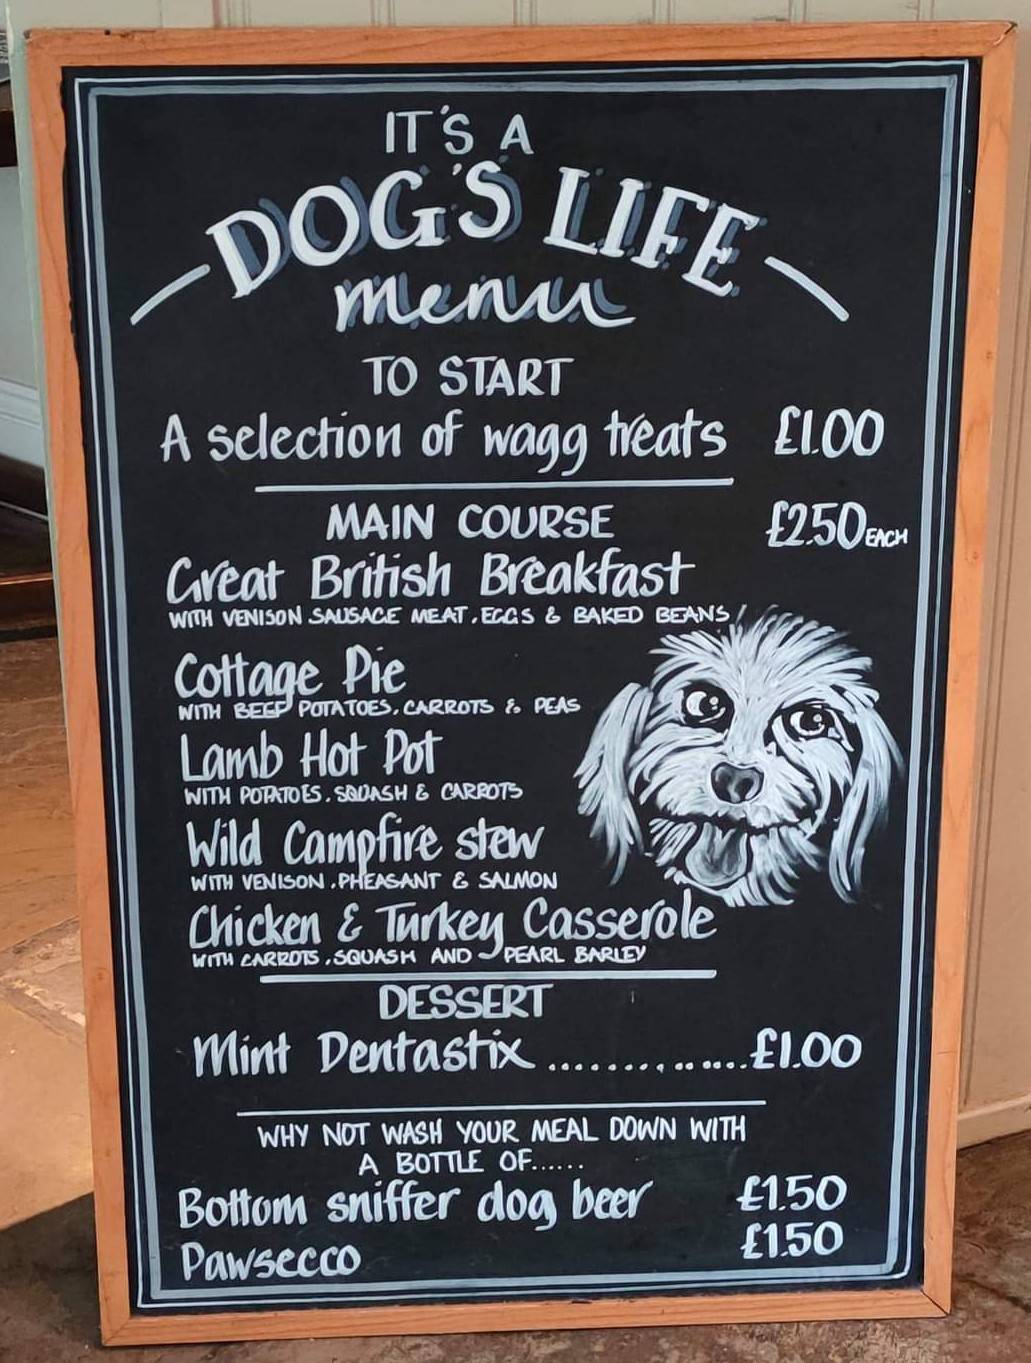 IT'S A
DOG'S LIFE
menu
TO START
A selection of wagg treats £1.00
MAIN COURSE £2.50 EACH
Great British Breakfast
WITH VENISON SAUSAGE MEAT, EGGS & BAKED BEANS
Cottage Pie
WITH BEEF POTATOES, CARROTS & PEAS
Lamb Hot Pot
WITH POTATOES, SQUASH & CARROTS
Wild Campfire stew
WITH VENISON, PHEASANT & SALMON
Chicken & Turkey Casserole
WITH CARROTS, SQUASH AND PEARL BARLEY
DESSERT
Mint Dentastix ............... £1.00
WHY NOT WASH YOUR MEAL DOWN WITH
A BOTTLE OF......
Bottom sniffer dog beer £1.50
Pawsecco £1.50